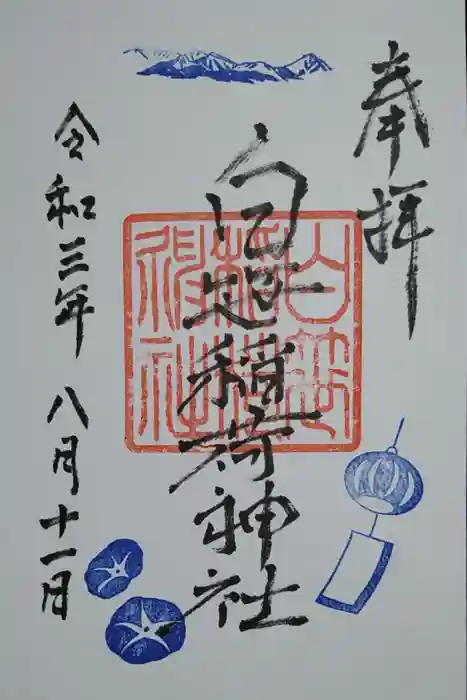 奉拝
白笹稲荷神社
白笹
稲荷
神社
令和三年 八月十一日